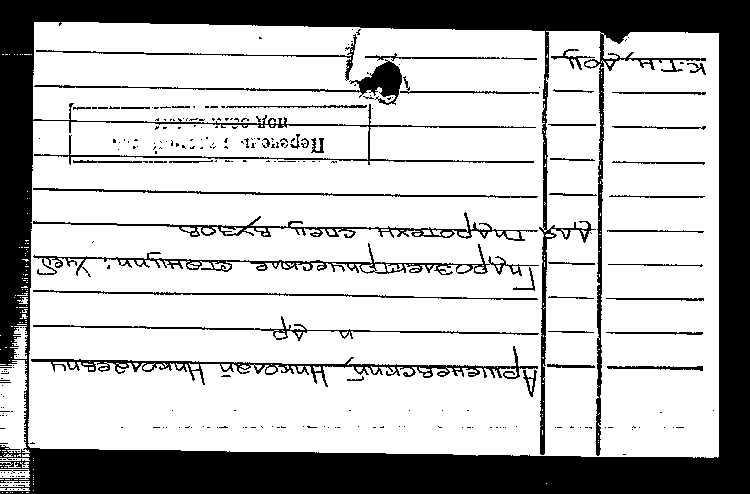 Аршеневский, Николай Николаевич
и др
Гидроэлектрические станции: Учеб
для гидротехн. спец. вузов
Перечень
под
к.т.н., доц